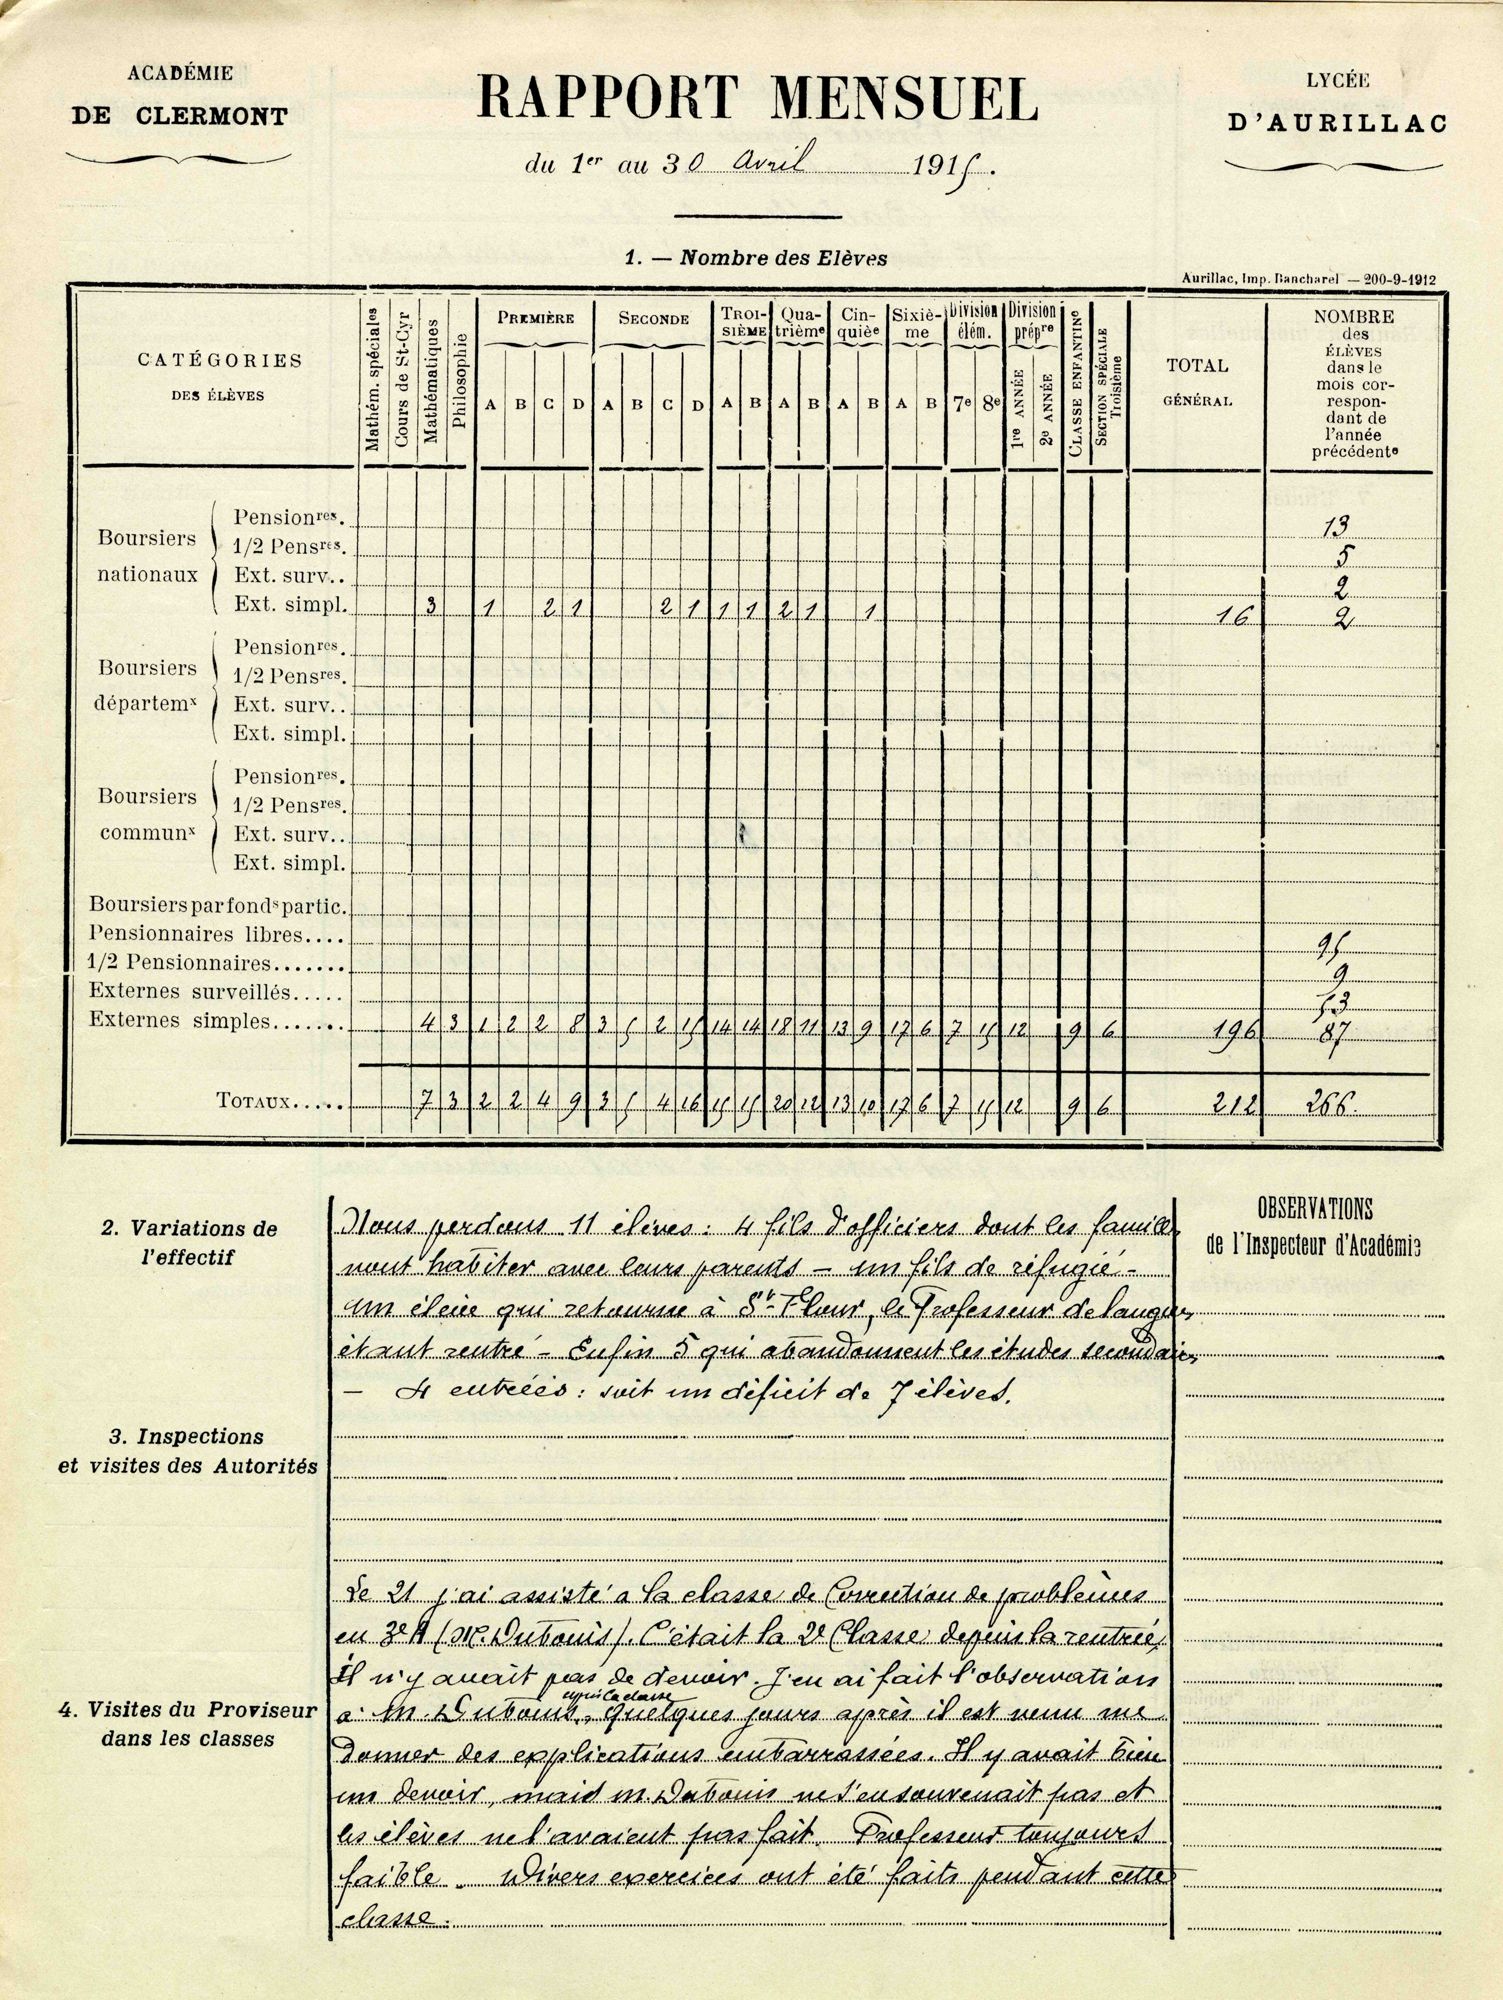 ACADÉMIE
DE CLERMONT
RAPPORT MENSUEL
du 1er au 30 Avril 1915.
LYCÉE
D'AURILLAC
1. — Nombre des Elèves
Aurillac, Imp. Bancharel — 200-9-1912
CATÉGORIES
DES ÉLÈVES
Mathém. spéciales
Cours de St-Cyr
Mathématiques
Philosophie
PREMIÈRE
A B C D
SECONDE
A B C D
TROISIÈME
A B
Quatrième
A B
Cinquièe
A B
Sixième
A B
Division élém.
7e 8e
Division prépre
1re ANNÉE
2e ANNÉE
CLASSE ENFANTINe
SECTION SPÉCIALE
Troisième
TOTAL
GÉNÉRAL
NOMBRE
des
ÉLÈVES
dans le
mois cor-
respon-
dant de
l'année
précédente
Boursiers nationaux
Pensionres. 13
1/2 Pensres. 5
Ext. surv.. 2
Ext. simpl. 3 1 2 1 2 1 1 1 2 1 1 16 2
Boursiers départemx
Pensionres.
1/2 Pensres.
Ext. surv..
Ext. simpl.
Boursiers communx
Pensionres.
1/2 Pensres.
Ext. surv..
Ext. simpl.
Boursiers par fonds partic.
Pensionnaires libres.... 95
1/2 Pensionnaires....... 9
Externes surveillés..... 53
Externes simples....... 4 3 1 2 2 8 3 5 2 15 14 14 18 11 13 9 17 6 7 15 12 9 6 196 87
TOTAUX..... 7 3 2 2 4 9 3 5 4 16 15 15 20 12 13 10 17 6 7 15 12 9 6 212 266.
2. Variations de
l'effectif
Nous perdons 11 élèves : 4 fils d'officiers dont les famill
vont habiter avec leurs parents — un fils de réfugié —
Un élève qui retourne à St Flour, le Professeur de langues
étant rentré — Enfin 5 qui abandonnent les études secondaires
— 4 entrées : soit un déficit de 7 élèves.
OBSERVATIONS
de l'Inspecteur d'Académie
3. Inspections
et visites des Autorités
4. Visites du Proviseur
dans les classes
Le 21 j'ai assisté à la classe de Correction de problèmes
en 3e A (M. Dubouis). C'était la 2e Classe depuis la rentrée,
Il n'y avait pas de devoir. J'en ai fait l'observation
après la classe
à M. Dubouis. Quelques jours après il est venu me
donner des explications embarrassées. Il y avait bien
un devoir, mais M. Dubouis ne s'en souvenait pas et
les élèves ne l'avaient pas fait. Professeur toujours
faible. Divers exercices ont été faits pendant cette
classe.